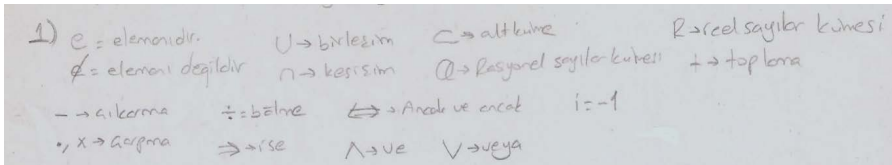 1) e = elemanıdır. U → birleşim ⊂ → altküme R → reel sayılar kümesi
∉ = elemanı değildir ∩ → kesişim Q → Rasyonel sayılar kümesi + → toplama
− → çıkarma ÷ = bölme ⇔ → Ancak ve ancak i = -1
•, x → çarpma ⇒ → ise ∧ → ve ∨ → veya